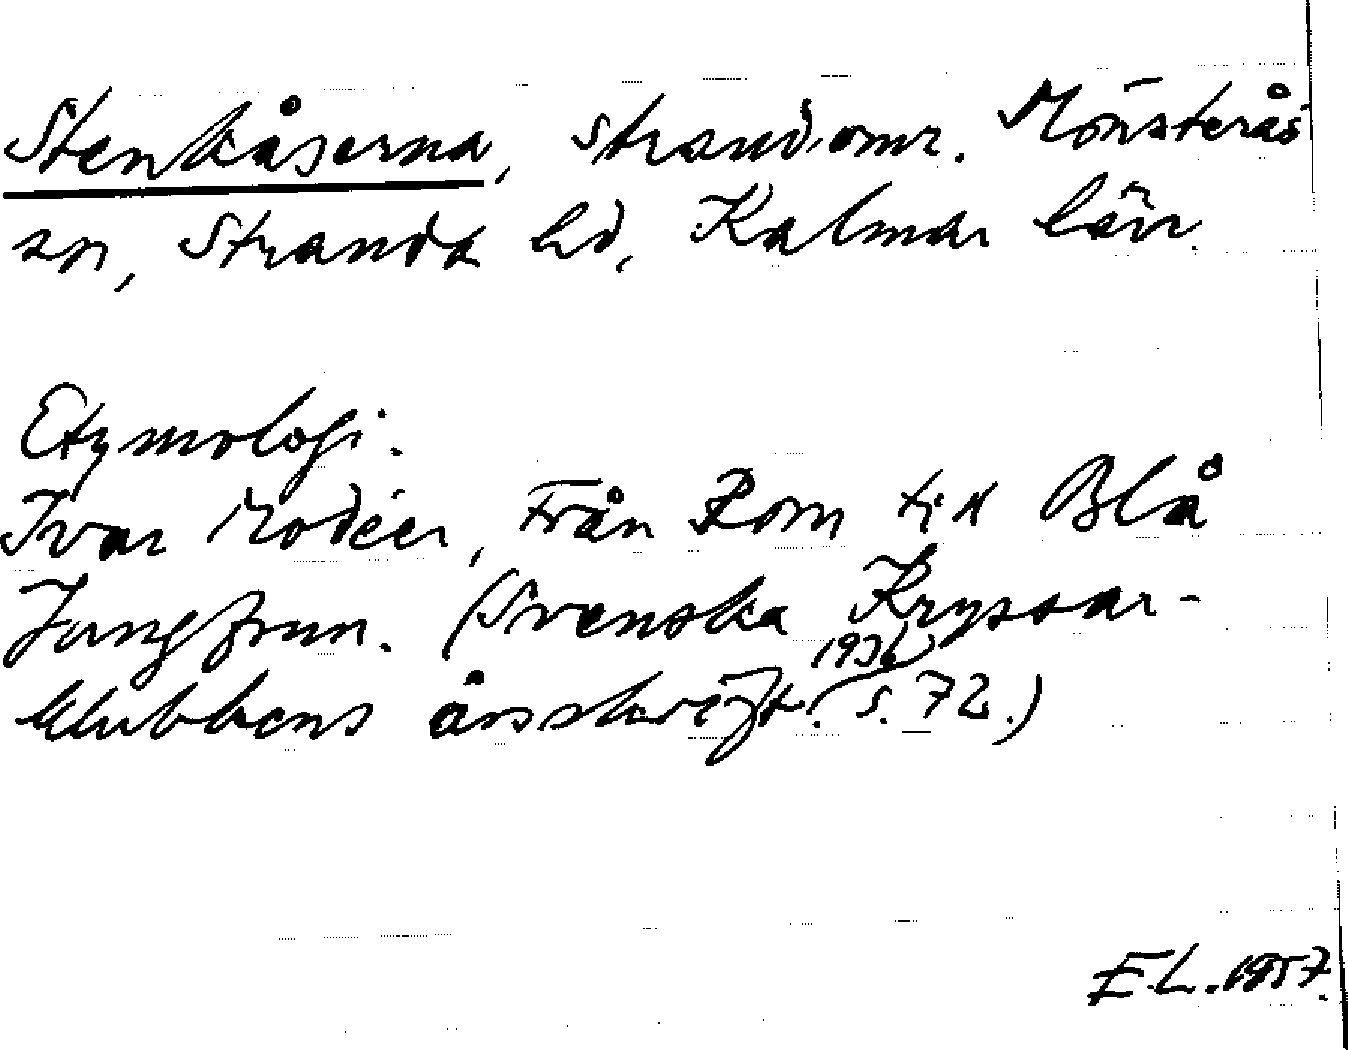 Stenkåserna, strandomr. Mönsterås
sn, Stranda hd, Kalmar län.
Etymologi.
Ivar Modéer, Från Rom till Blå
Jungfrun. (Svenska Kryssar-
klubbens årsskrift. 1936, s. 72.)
E.L. 1957.